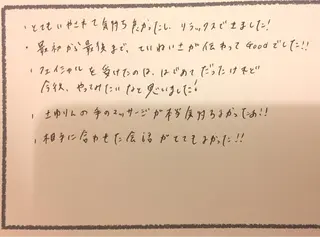 ・とてもいやされて気持ち良かったし、リラックスで出ました!
・最初から最後まで、ていねいさが伝わってGoodでした!!
・フェイシャルを受けたのは、はじめてだったけれど
今後、やってみたいなと思いました!
・土ゆりんの手のマッサージが本当気持ちよかったあ!!
・相手に合わせた会話がとてもよかった!!